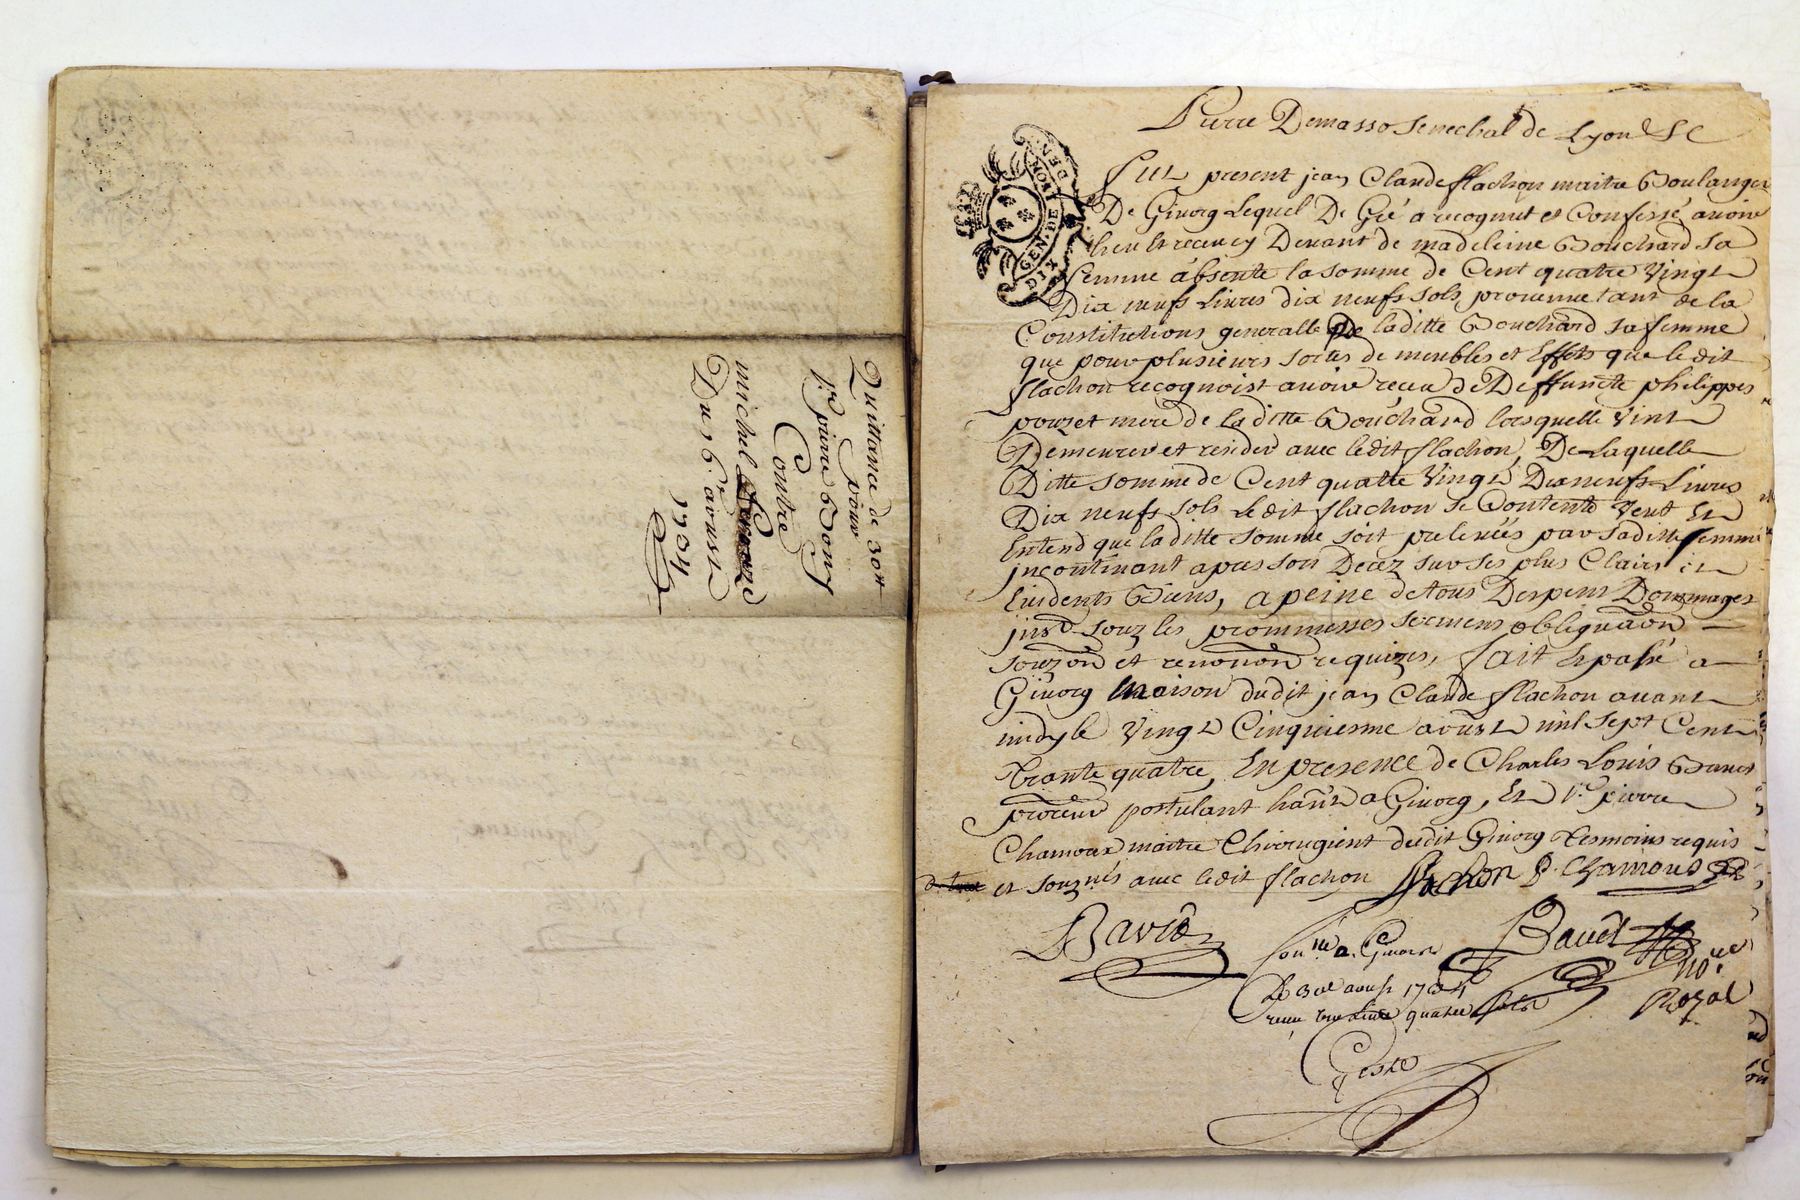 Quittance de 30tt
pour
Sr pierre Bony
Contre
michel
Du 16e aoust
1734
Pierre Demasso Senechal de Lyon &c
Fut present jean Claude flachon maitre Boulanger
De Givorg Lequel De Gré a recognut et Confessé avoir
heu et receu cy Devant de madeleine Bouchard sa
femme absente la somme de Cent quatre Vingt
Dix neufs Livres dix neufs sols provenue tant de la
Constitutions generalle De laditte Bouchard sa femme
que pour plusieurs sortes de meubles et Effets que le dit
flachon recognoist avoir receu de Deffuncte philippes
pouzet mere de laditte Bouchard lorsquelle vint
Demeurer et resider avec ledit flachon, De Laquelle
Ditte somme de Cent quatre Vingt Dix neufs Livres
Dix neufs sols Ledit flachon se Contente Veut Et
Entend que laditte somme soit prelevées par saditte femme
incontinant apres son Decez sur ses plus Clairs et
Evidents Biens, a peine de tous Despens Dommages
jnst souz les prommesses sermens obligaôn
souzôn et renonôn requizes, fait Et passé a
Givorg Maison dudit jean Claude flachon avant
midy le Vingt Cinquiesme aoust mil sept Cent
Trante quatre, En presence de Charles Louis
procreur postulant hant a Givorg, Et Sr pierre
Chamoux maitre Chirrugient dudit Givorg Tesmoins requis
et souznés avec ledit flachon Flachon P. Chamous
Con.lle a Givors
Le 30e aoust 1734
receu
Noe.
Royal
Geste
GEN. DE LYON
DIX DEN.